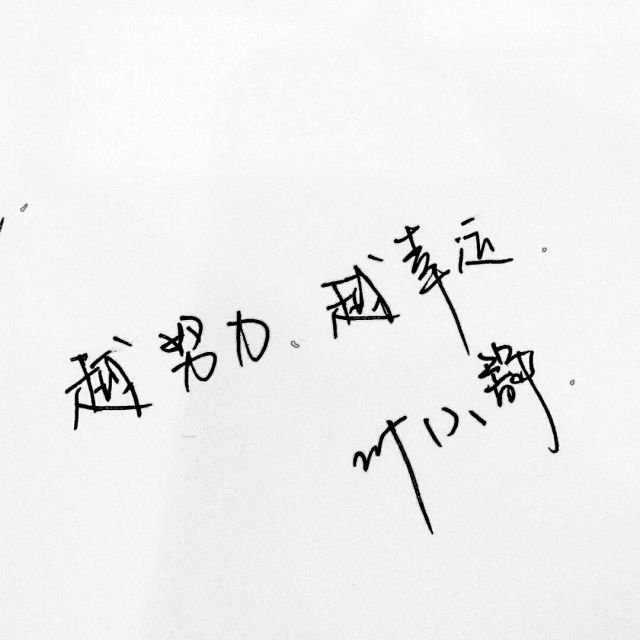 越努力、越幸运.
叶小静.